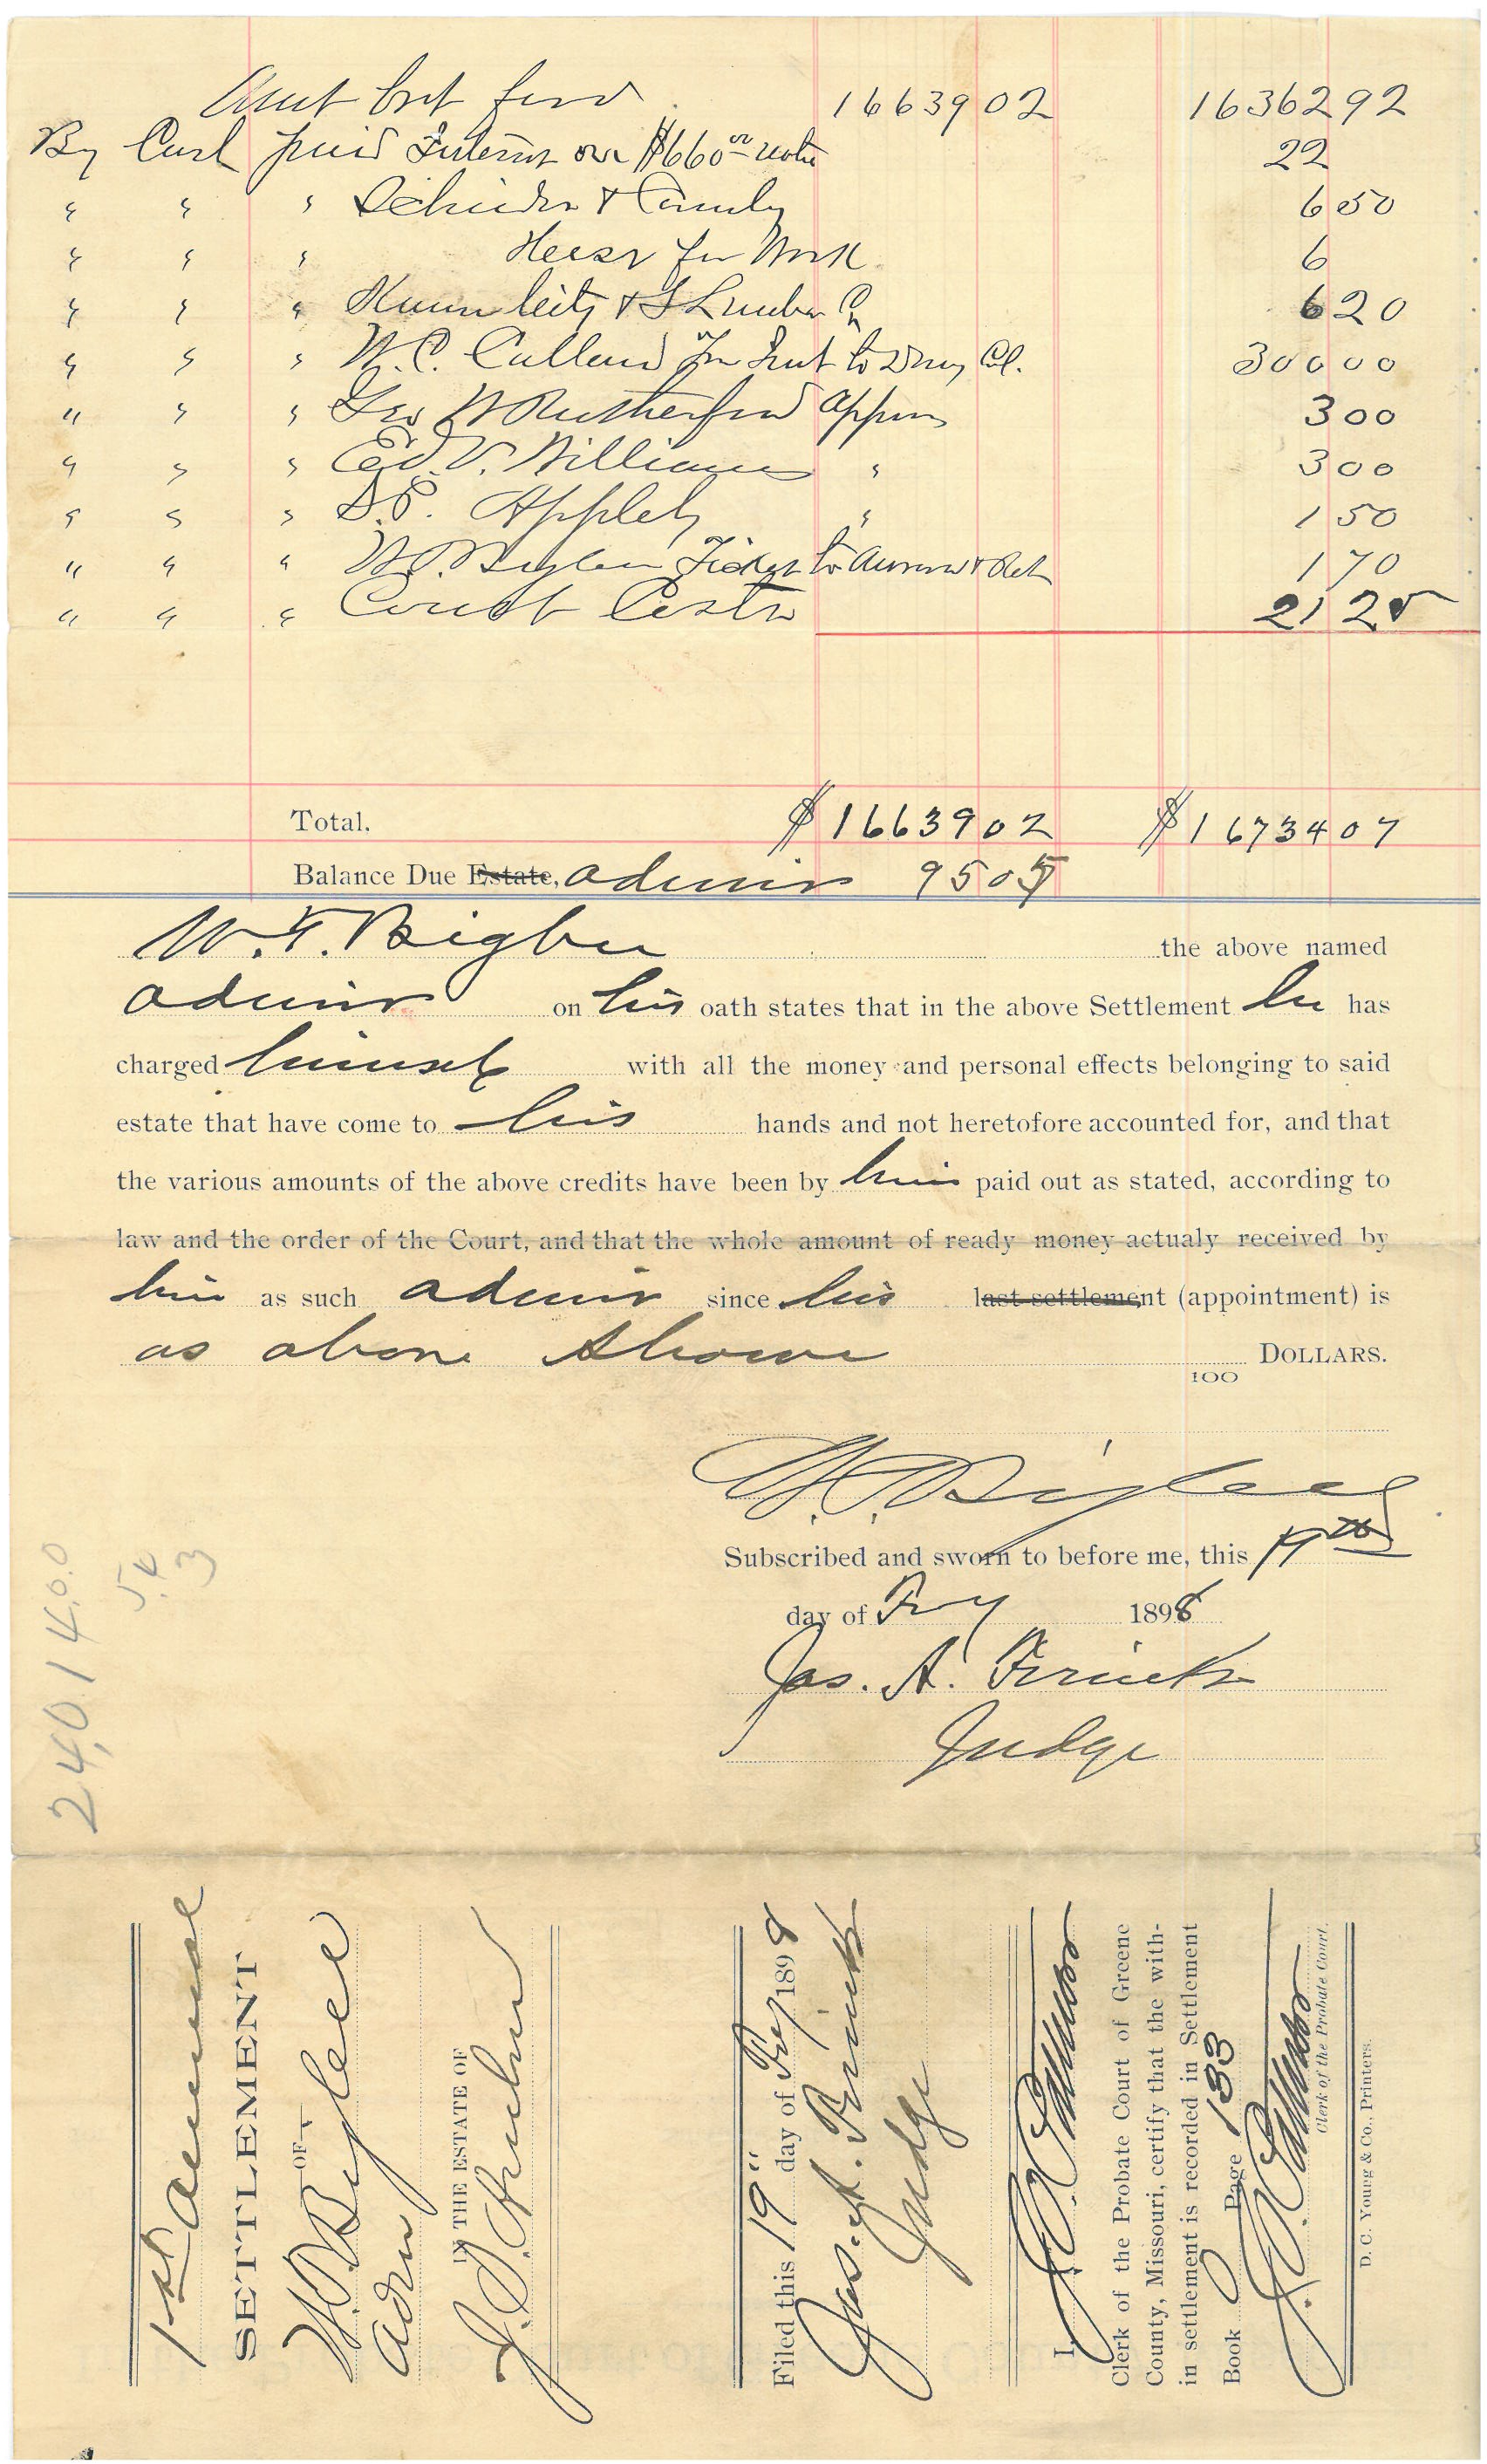 Amt brt ford 1663902 1636292
By Cash paid Interest on $660 00 note 22
" " " & Family 650
" " " for Work 6
" " " & Lumber Co 620
" " " W. C. to Col. 30000
" " " Geo W Rutherford Appr 300
" " " Ed. V. Williams " 300
" " " S.P. Appleby " 150
" " " W.F. Bigbee Ticket to Aurora & Ret 170
" " " Court Costs 2125
Total. $1663902 $1673407
Balance Due Estate, admr 9505
W. F. Bigbee the above named
admr on his oath states that in the above Settlement he has
charged himself with all the money and personal effects belonging to said
estate that have come to his hands and not heretofore accounted for, and that
the various amounts of the above credits have been by him paid out as stated, according to
law and the order of the Court, and that the whole amount of ready money actualy received by
him as such admr since his last settlement (appointment) is
as above shown DOLLARS.
100
W.F. Bigbee
Subscribed and sworn to before me, this 19th
day of Fry 1898
Jas. A. Frink
Judge
24,014.00
5.4
3
1st annual
SETTLEMENT
OF
W.F. Bigbee
admr
IN THE ESTATE OF
J.
Filed this 19" day of Fry 1898
Jas. A. Frink
Judge
I,
Clerk of the Probate Court of Greene
County, Missouri, certify that the with-
in settlement is recorded in Settlement
Book Page 133
Clerk of the Probate Court.
D. C. Young & Co., Printers.